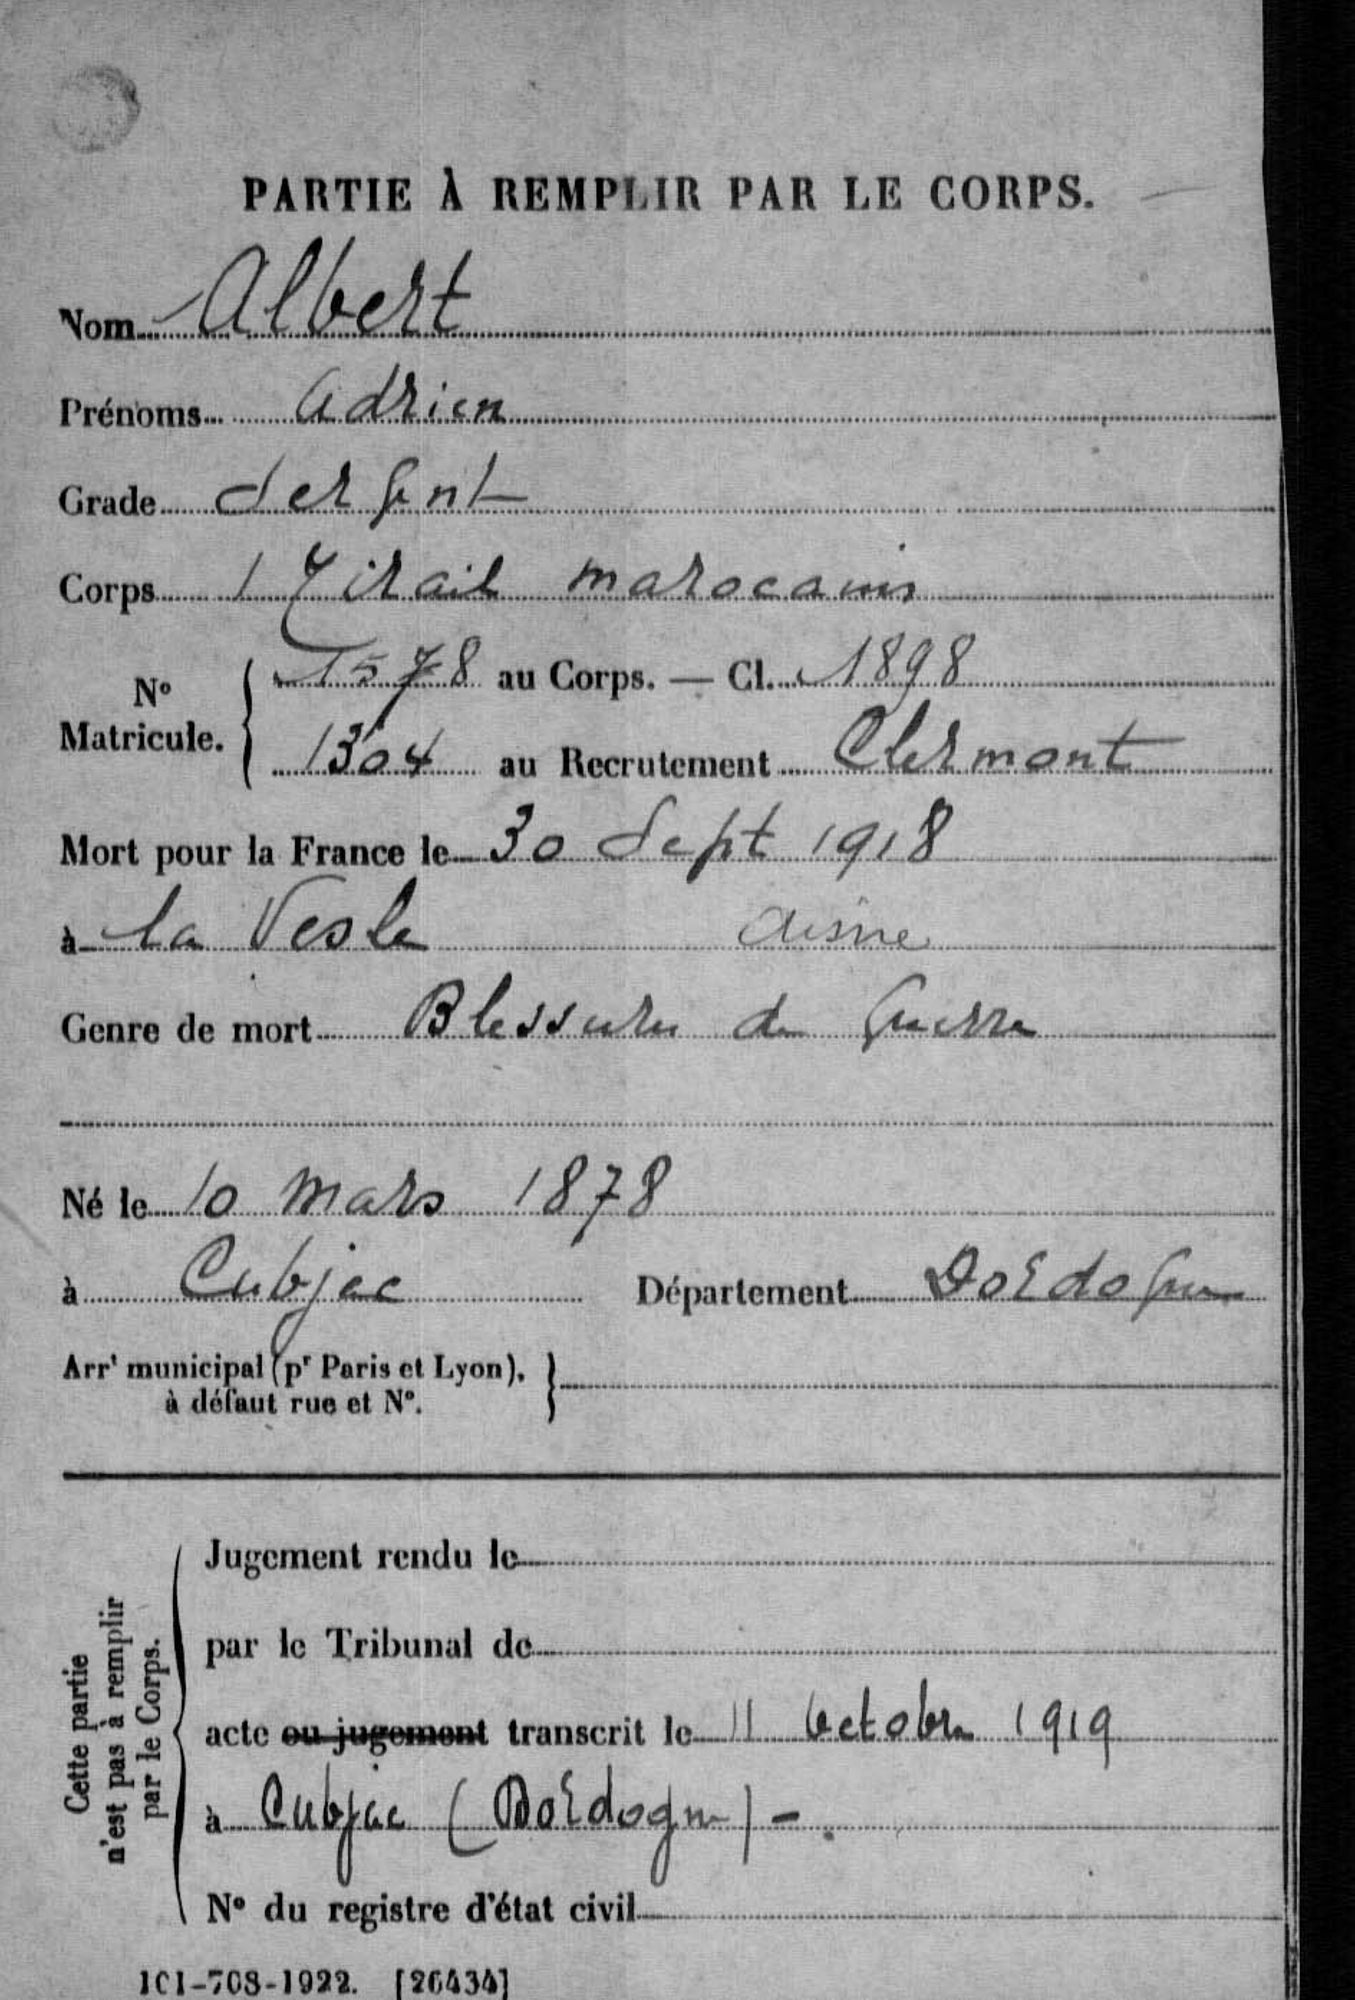 PARTIE À REMPLIR PAR LE CORPS.
Nom Albert
Prénoms Adrien
Grade Sergent
Corps 1 Tirail marocains
N° Matricule. { 1578 au Corps. — Cl. 1898
1304 au Recrutement Clermont
Mort pour la France le 30 Sept 1918
à la Vesle Aisne
Genre de mort Blessures de Guerre
Né le 10 Mars 1878
à Cubjac Département Dordogne
Arr<sup>t</sup> municipal (p<sup>r</sup> Paris et Lyon), }
à défaut rue et N°.
Cette partie
n'est pas à remplir
par le Corps.
Jugement rendu le
par le Tribunal de
acte ou jugement transcrit le 11 Octobre 1919
à Cubjac (Dordogne) -
N° du registre d'état civil
101-708-1922. [26434]